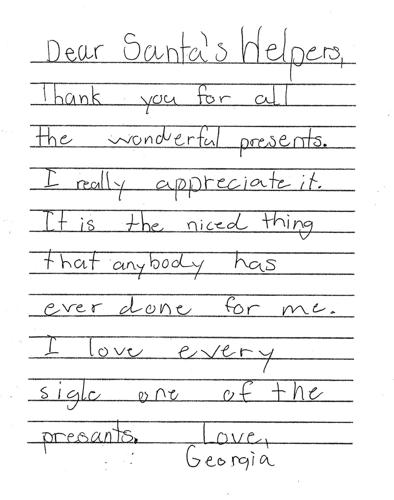 Dear Santa's Helpers,
Thank you for all
the wonderful presents.
I really appreciate it.
It is the niced thing
that anybody has
ever done for me.
I love every
sigle one of the
presants. Love,
Georgia